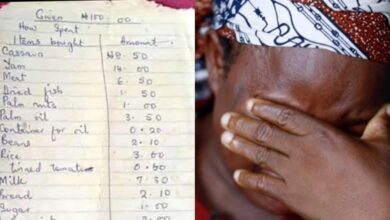 Given ₦150.00
How Spent
Items bought Amount
Cassava ₦8.50
Yam 14.00
Meat 6.50
Dried fish 1.50
Palm nuts 1.00
Palm oil 3.50
Container for oil 0.20
Beans 2.10
Rice 3.00
Tined tomatoe
Milk 7.30
Bread 2.10
Sugar 1.00